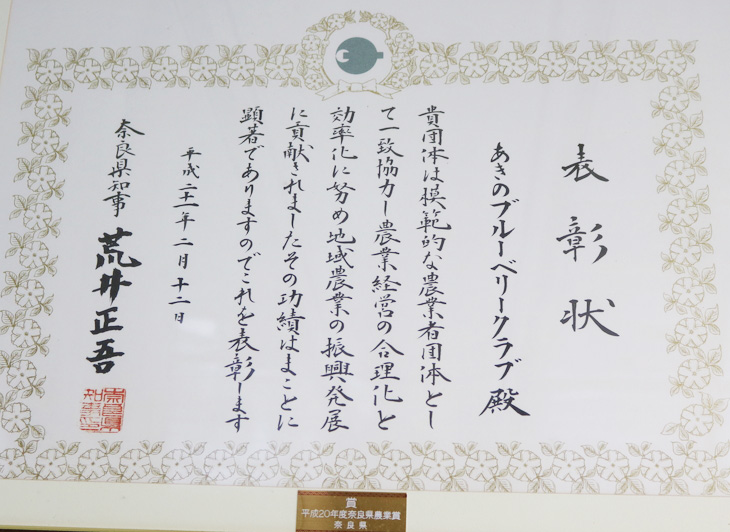 表彰状
あきのブルーベリークラブ殿
貴団体は模範的な農業者団体とし
て一致協力し農業経営の合理化と
効率化に努め地域農業の振興発展
に貢献されましたその功績はまことに
顕著でありますのでこれを表彰します
平成二十一年二月十二日
奈良県知事 荒井正吾
奈良県
知事印
賞
平成20年度奈良県農業賞
奈良県